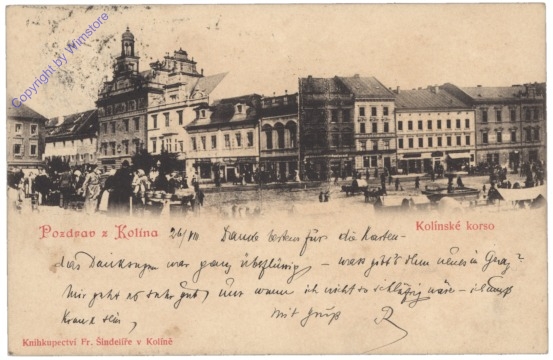 Copyright by Wimstore
Pozdrav z Kolína
Kolínské korso
26/VIII Danke bestens für die Karten -
das Danksagen war ganz überflüssig - was gibt's denn neues in Graz?
Mir geht es sehr gut, nur wann ich nicht so schläfrig wäre -
Mit Gruß R
Knihkupectví Fr. Šindeláře v Kolíně